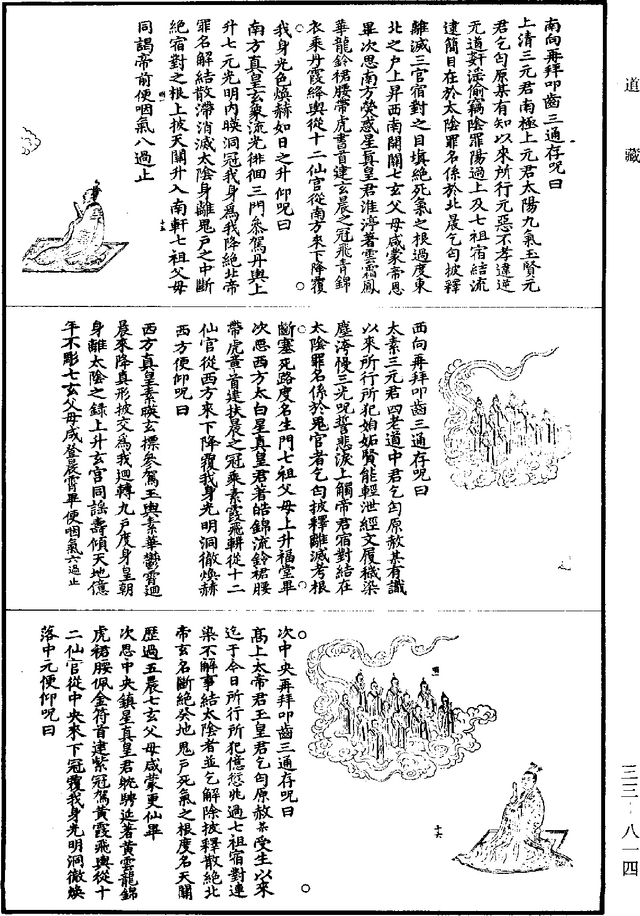 道藏
南向再拜叩齒三通存呪曰
上清三元君南極上元君太陽九氣玉賢元
君乞匄原某有知以來所行元惡不孝違逆
无道姧淫偷竊陰罪陽過上及七祖宿結流
逮簡目在於太陰罪名係於北晨乞匄披釋
離滅三官宿對之目填絕死氣之根過度東
北之戶上昇西南開關七玄父母咸蒙帝恩
畢次思南方熒惑星真皇君淮渟著雲霜鳳
華龍鈴裙腰帶虎書首建玄晨之冠飛青錦
衣乘丹霞絳輿從十二仙官從南方來下降覆
我身光色煥赫如日之升仰呪曰
南方真皇玄象流光徘徊三門忝駕丹輿上
升七元光明內映洞冠我身為我降絕北帝
罪名解結散滯消滅太陰身離鬼戶之中斷
絕宿對之根上披天關升入南軒七祖父母
同謁帝前便咽氣八過止
十五
西向再拜叩齒三通存呪曰
太素三元君四老道中君乞匄原赦某有識
以來所行所犯妬妬賢能輕泄經文履穢染
塵濤慢三光呪誓悲淚上觸帝君宿對結在
太陰罪名係於鬼官者乞匄披釋離滅考根
斷塞死路度名生門七祖父母上升福堂畢
次思西方太白星真皇君著皓錦流鈴裙腰
帶虎黃首建扶晨之冠乘素霞飛軿從十二
仙官從西方來下降覆我身光明洞徹煥赫
西方便仰呪曰
西方真皇素蹤玄摽參駕玉輿素華鬱霄迴
晨來降真形披交為我迴轉九戶度身皇朝
身離太陰之錄上升玄宮同謠壽傾天地億
年不彫七玄父母咸登晨霄畢便咽氣六過止
次中央再拜叩齒三通存呪曰
高上太帝君玉皇君乞匄原赦某受生以來
迄于今日所行所犯億愆兆過七祖宿對連
染不解事結太陰者並乞解除披釋散絕北
帝玄名斷絕癸地鬼戶死氣之根度名天關
歷過五晨七玄父母咸蒙更仙畢
次思中央鎮星真皇君姚騁延著黃雲龍錦
虎裙腰佩金符首建紫冠駕黃霞飛輿從十
二仙官從中央來下冠覆我身光明洞徹煥
落中元便仰呪曰
十六
三三-八一四